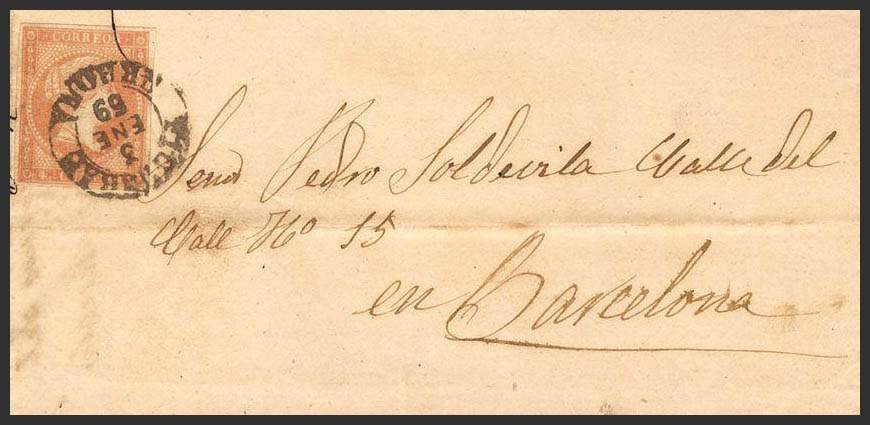 CORREOS
5
ENE
69
Senor Pedro Soldevila Calle del
Call Nº 15
en Barcelona